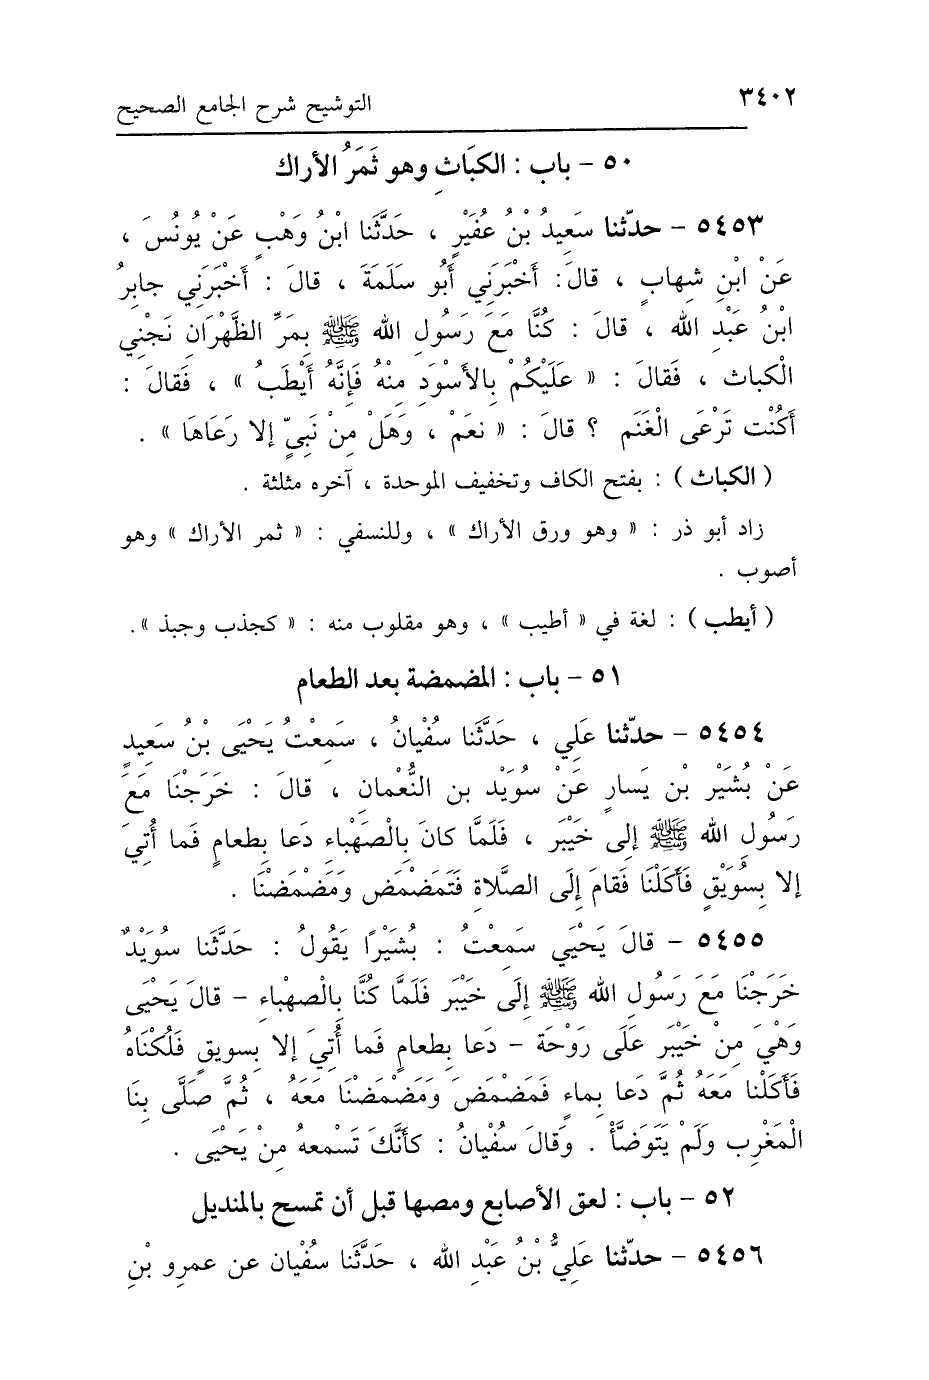 ٣٤٠٢ التوشيح شرح الجامع الصحيح
٥٠ - باب : الكبَاثِ وهو ثَمَرُ الأراك
٥٤٥٣ - حدّثنا سَعِيدُ بْنُ عُفَيْرٍ ، حَدَّثَنا ابْنُ وَهْبٍ عَنْ يُونُسَ ،
عَنْ ابْنِ شِهابٍ ، قالَ: أَخْبَرَنِي أَبُو سَلَمَةَ ، قالَ : أَخْبَرَنِي جابِرُ
ابْنُ عَبْدِ الله ، قالَ : كُنَّا مَعَ رَسُولِ الله ﷺ بِمَرِّ الظَّهْرَانِ نَجْنِي
الْكباث ، فَقالَ : « عَلَيْكُمْ بِالأَسْوَدِ مِنْهُ فَإِنَّهُ أَيْطَبُ » ، فَقالَ :
أَكُنْت تَرْعَى الْغَنَم ؟ قالَ : « نعَمْ ، وَهَلْ مِنْ نَبِيّ إلا رَعَاهَا » .
( الكباث ) : بفتح الكاف وتخفيف الموحدة ، آخره مثلثة .
زاد أبو ذر : « وهو ورق الأراك » ، وللنسفي : « ثمر الأراك » وهو
أصوب .
( أيطب ) : لغة في « أطيب » ، وهو مقلوب منه : « كجذب وجبذ ».
٥١ - باب : المضمضة بعد الطعام
٥٤٥٤ - حدّثنا عَلِي ، حَدَّثَنا سُفْيانُ ، سَمِعْتُ يَحْيَى بْنُ سَعِيدٍ
عَنْ بُشَيْرْ بْنِ يَسارٍ عَنْ سُوَيْدِ بن النُّعْمان ، قالَ : خَرَجْنا مَعَ
رَسُولِ الله ﷺ إلى خَيْبَر ، فَلَمَّا كانَ بِالْصَهْباءِ دَعا بِطعامٍ فَما أُتِيَ
إلا بِسُوَيْقٍ فَأَكَلْنَا فَقامَ إِلَى الصَّلاةِ فَتَمَضْمَض وَمَضْمَضْنَا .
٥٤٥٥ - قالَ يَحْيَي سَمِعْتُ : بُشَيْرًا يَقُولُ : حَدَّثَنا سوَيْدٌ
خَرَجْنَا مَعَ رَسُولِ الله ﷺ إِلَى خَيْبَر فَلَمَّا كُنَّا بِالْصهْباء - قالَ يَحْيَى
وَهْيَ مِنْ خَيْبَر عَلَى رَوْحَة - دَعا بِطعامٍ فَما أُتِيَ إلا بِسويقٍ فَلُكْنَاهُ
فَأَكَلْنا مَعَهُ ثُمَّ دَعا بِماءٍ فَمَضْمَضَ وَمَضْمَضْنَا مَعَهُ ، ثُمَّ صَلَّى بِنَا
الْمَغْرِب وَلَمْ يَتَوَضَّأْ . وَقالَ سُفْيانُ : كَأَنَّكَ تَسْمعهُ مِنْ يَحْيَى .
٥٢ - باب : لعق الأصابع ومصها قبل أن تمسح بالمنديل
٥٤٥٦ - حدّثنا عَلِيُّ بْنُ عَبْدِ الله ، حَدَّثَنا سُفْيان عن عمرِو بْنِ